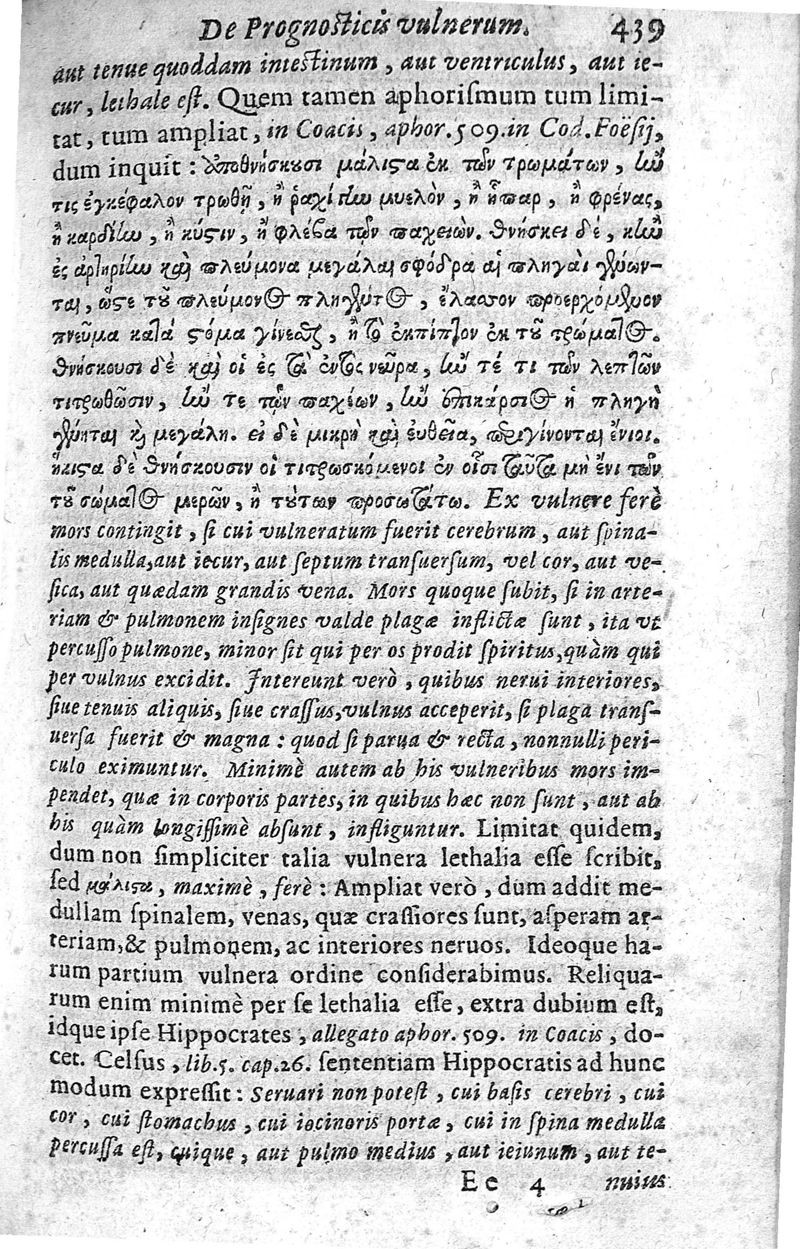 De Prognosticis vulnerum. 439
aut tenue quoddam intestinum, aut ventriculus, aut ie-
cur, lethale est. Quem tamen aphoriſmum tum limi-
tat, tum ampliat, in Coacis, aphor. 509. in Cod. Foëſij,
dum inquit: ἀποθνήσκουσι μάλιϛα ἐκ τῶν τρωμάτων, ἢν
τις ἐγκέφαλον τρωθῇ, ἢ ῥαχίτην μυελὸν, ἢ ἧπαρ, ἢ φρένας,
ἢ καρδίην, ἢ κύϛιν, ἢ φλέβα τῶν παχειῶν. θνήσκει δέ, κἢν
ἐς ἀρτηρίην καὶ πλεύμονα μεγάλαι σφόδρα αἱ πληγαὶ γένων-
ται, ὥϛε τοῦ πλεύμονος πληγέντος, ἔλασσον προερχόμενον
πνεῦμα κατὰ ϛόμα γίνεσθαι, ἢ τὸ ἐκπίπτον ἐκ τοῦ τρώματος.
θνήσκουσι δὲ καὶ οἱ ἐς τὰ ἐντὸς νεῦρα, ἤν τέ τι τῶν λεπτῶν
τιτρωθῶσιν, ἤν τε τῶν παχέων, ἢν ἐπικάρσιος ἡ πληγὴ
γένηται κ μεγάλη. εἰ δὲ μικρὴ καὶ εὐθεῖα, περιγίνονται ἔνιοι.
ἥκιϛα δὲ θνήσκουσιν οἱ τιτρωσκόμενοι ἐν οἷσι ταῦτα μὴ ἔνι τῶν
τοῦ σώματος μερῶν, ἢ τούτων προσωτάτω. Ex vulnere ferè
mors contingit, ſi cui vulneratum fuerit cerebrum, aut ſpina-
lis medulla, aut iecur, aut ſeptum tranſuerſum, vel cor, aut ve-
ſica, aut quædam grandis vena. Mors quoque ſubit, ſi in arte-
riam & pulmonem inſignes valde plagæ inflictæ ſunt, ita vt
percuſſo pulmone, minor ſit qui per os prodit ſpiritus, quàm qui
per vulnus excidit. Intereunt verò, quibus nerui interiores,
ſiue tenuis aliquis, ſiue craſſus, vulnus acceperit, ſi plaga tranſ-
uerſa fuerit & magna: quod ſi parua & recta, nonnulli peri-
culo eximuntur. Minimè autem ab his vulneribus mors im-
pendet, quæ in corporis partes, in quibus hæc non ſunt, aut ab
his quàm longiſſimè abſunt, infliguntur. Limitat quidem,
dum non ſimpliciter talia vulnera lethalia eſſe ſcribit,
ſed μάλιϛα, maximè, ferè: Ampliat verò, dum addit me-
dullam ſpinalem, venas, quæ craſſiores ſunt, aſperam ar-
teriam, & pulmonem, ac interiores neruos. Ideoque ha-
rum partium vulnera ordine conſiderabimus. Reliqua-
rum enim minimè per ſe lethalia eſſe, extra dubium eſt,
idque ipſe Hippocrates, allegato aphor. 509. in Coacis, do-
cet. Celſus, lib. 5. cap. 26. ſententiam Hippocratis ad hunc
modum expreſſit: Seruari non poteſt, cui baſis cerebri, cui
cor, cui ſtomachus, cui iocinoris portæ, cui in ſpina medulla
percuſſa eſt, cuique, aut pulmo medius, aut ieiunum, aut te-
Ee 4 nuius